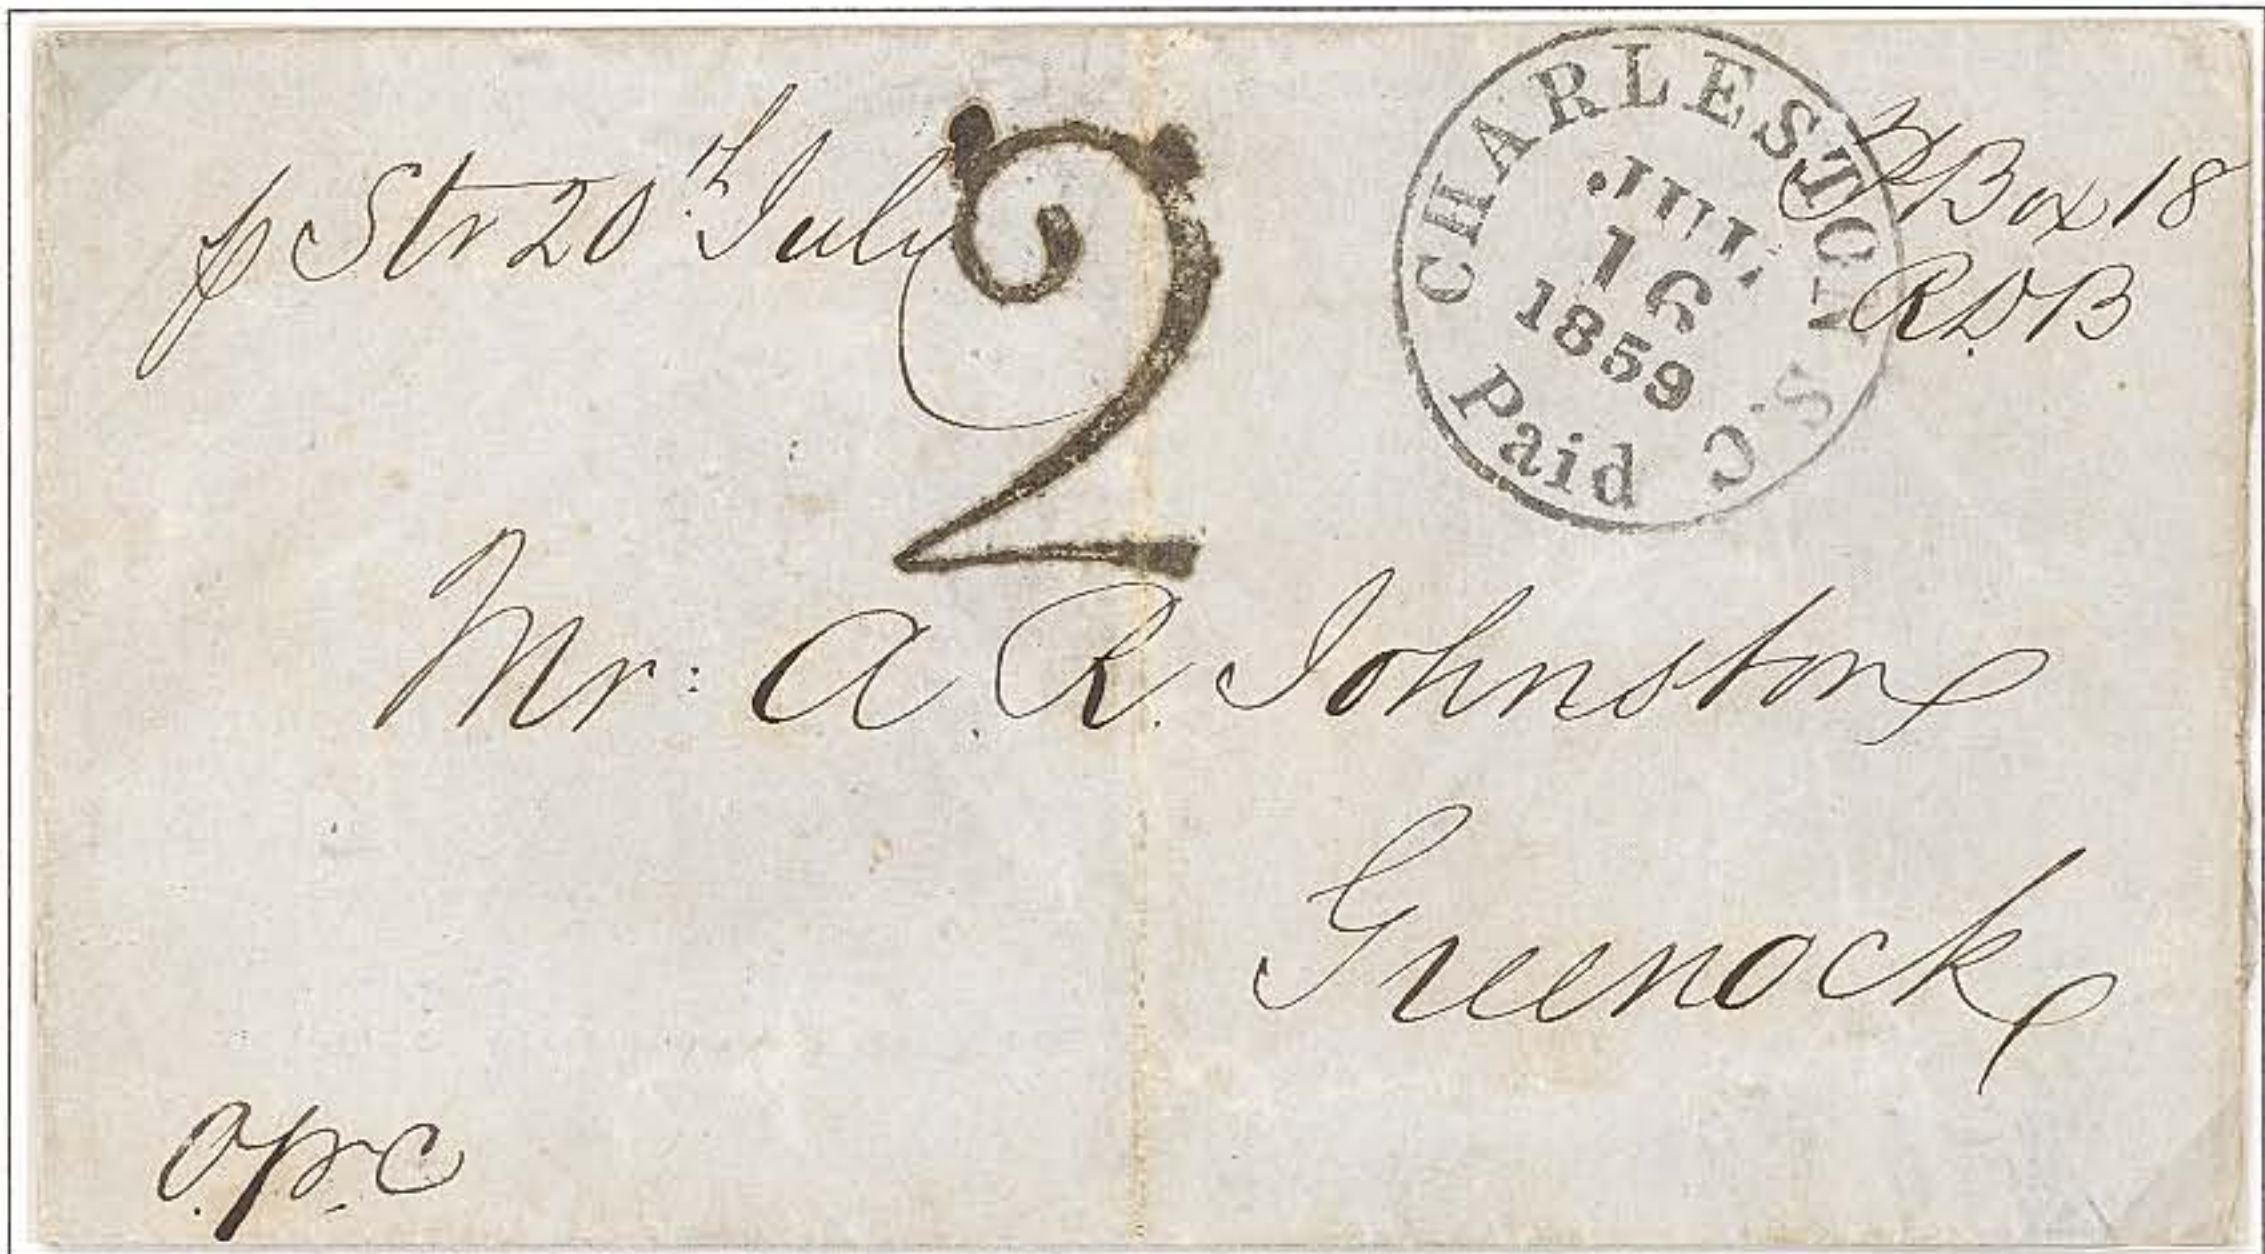 p Str 20th July
2
CHARLESTON S.C.
JUL
16
1859
Paid
Box 18
R.D.B
Mr: A. R. Johnston
Greenock
O.p.c